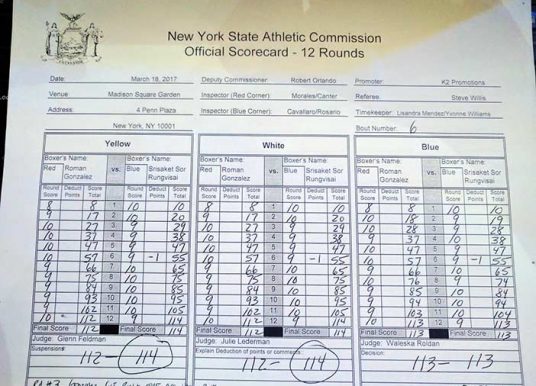 New York State Athletic Commission
Official Scorecard - 12 Rounds
Date: March 18, 2017 Deputy Commissioner: Robert Orlando Promoter: K2 Promotions
Venue Madison Square Garden Inspector (Red Corner): Morales/Canter Referee: Steve Willis
Address: 4 Penn Plaza Inspector (Blue Corner): Cavallaro/Rosario Timekeeper: Lisandra Mendez/Yvonne Williams
New York, NY 10001 Bout Number: 6
Yellow White Blue
Boxer's Name: Boxer's Name: Boxer's Name: Boxer's Name: Boxer's Name: Boxer's Name:
Red Roman Gonzalez vs. Blue Srisaket Sor Rungvisai Red Roman Gonzalez vs. Blue Srisaket Sor Rungvisai Red Roman Gonzalez vs. Blue Srisaket Sor Rungvisai
Round Score Deduct Points Score Total Round Score Deduct Points Score Total Round Score Deduct Points Score Total Round Score Deduct Points Score Total Round Score Deduct Points Score Total Round Score Deduct Points Score Total
8 8 1 10 10 8 8 1 10 10 8 8 1 10 10
9 17 2 10 20 9 17 2 10 20 10 18 2 9 19
10 27 3 9 29 10 27 3 9 29 10 28 3 9 28
10 37 4 9 38 10 37 4 9 38 9 37 4 10 38
10 47 5 9 47 10 47 5 9 47 10 47 5 9 47
10 57 6 9 -1 55 10 57 6 9 -1 55 10 57 6 9 -1 55
9 66 7 10 65 9 66 7 10 65 9 66 7 10 65
9 75 8 10 75 9 75 8 10 75 10 76 8 9 74
9 84 9 10 85 9 84 9 10 85 9 85 9 10 84
9 93 10 10 95 9 93 10 10 95 9 94 10 10 94
9 102 11 10 105 9 102 11 10 105 9 103 11 10 104
10 112 12 9 114 10 112 12 9 114 10 113 12 9 113
Final Score 112 Final Score 114 Final Score 112 Final Score 114 Final Score 113 Final Score 113
Judge: Glenn Feldman Judge: Julie Lederman Judge: Waleska Roldan
Suspensions Explain Deduction of points or comments: Decision:
112 - 114 112 - 114 113 - 113